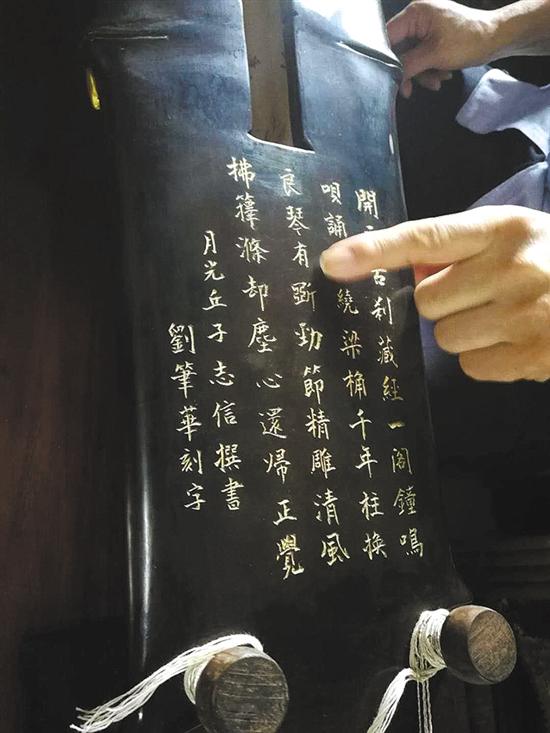 開古刹藏經一閣鐘鳴
唄誦繞梁桷千年柱換
良琴有斲勁節精雕清風
拂籜滌却塵心還歸正覺
月光丘子志信撰書
劉筆華刻字